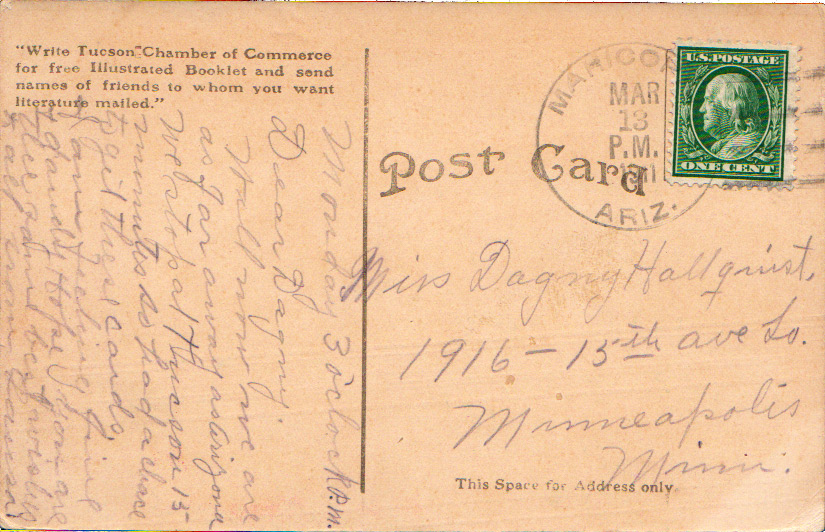 "Write Tucson Chamber of Commerce
for free Illustrated Booklet and send
names of friends to whom you want
literature mailed."
Monday 3 oclock P.m.
Dear Dagny
Well now we are
as far away as Arizona
We stop at Thucson 15
minutes so had a chance
to get these cards
I am feeling fine
dandy Hope you are
the same best wishes
to all from
Post Card
MARICO
MAR
13
P.M.
ARIZ.
U.S. POSTAGE
ONE CENT
Miss Dagny Hallquist,
1916 - 15th ave So.
Minneapolis
Minn.
This Space for Address only